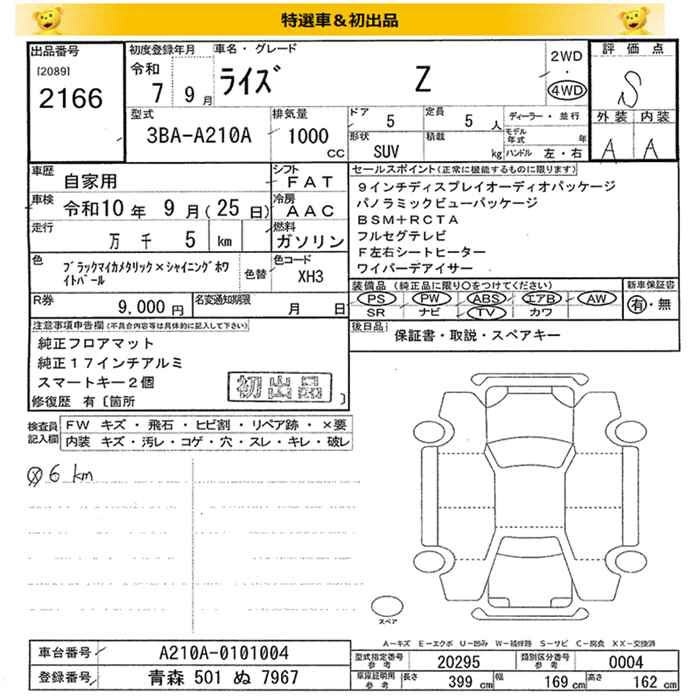 特選車＆初出品
出品番号
[2089]
2166
初度登録年月
令和
7年 9月
車名・グレード
ライズ Z
2WD
・
4WD
評価点
S
外装 内装
A A
型式
3BA-A210A
排気量
1000
CC
ドア 5
定員 5人
形状 SUV
積載 kg
ディーラー・並行
モデル年式 年
ハンドル 左・右
車歴
自家用
シフト
FAT
車検 令和10年 9月(25日)
冷房
AAC
走行
万 千 5 km
燃料
ガソリン
色
ブラックマイカメタリック×シャイニングホワイトパール
色替
色コード
XH3
R券
9,000円
名変通知期限
月 日
セールスポイント(正常に機能するものに限ります)
9インチディスプレイオーディオパッケージ
パノラミックビューパッケージ
BSM+RCTA
フルセグテレビ
F左右シートヒーター
ワイパーデアイサー
装備品(純正品に限り○をつけてください)
PS PW ABS エアB AW
SR ナビ TV カワ
新車保証書
有・無
後日品
保証書・取説・スペアキー
注意事項申告欄(不具合内容等は具体的に記入して下さい)
純正フロアマット
純正17インチアルミ
スマートキー2個
初出品
修復歴 有〔箇所 〕
検査員記入欄
FW キズ・飛石・ヒビ割・リペア跡・×要
内装 キズ・汚レ・コゲ・穴・スレ・キレ・破レ
6 km
スペア
A－キズ E－エクボ U－凹み W－補修跡 S－サビ C－腐食 XX－交換済
車台番号
A210A-0101004
登録番号
青森 501 ぬ 7967
型式指定番号 参考
20295
類別区分番号 参考
0004
車庫証明用 参考
長さ 399 cm
幅 169 cm
高さ 162 cm